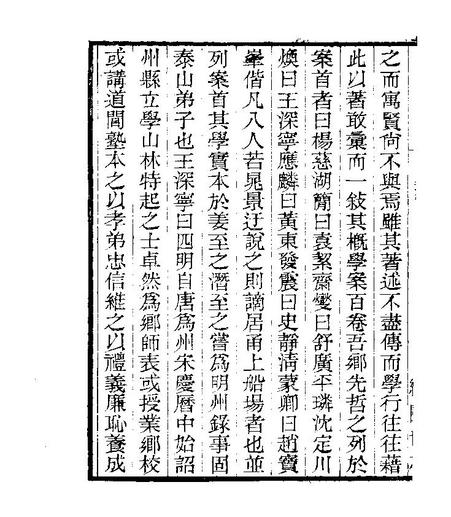 之而寓賢尙不與焉雖其著述不盡傳而學行往往藉
此以著敢彙而一敍其槪學案百卷吾鄕先哲之列於
案首者曰楊慈湖簡曰袁絜齋燮曰舒廣平璘沈定川
煥曰王深寧應麟曰黃東發震曰史靜清蒙卿曰趙寶
峯偕凡八人若晁景迂說之則謫居甬上船場者也並
列案首其學實本於姜至之潛至之嘗爲明州錄事固
泰山弟子也王深寧曰四明自唐爲州宋慶曆中始詔
州縣立學山林特起之士卓然爲鄕師表或授業鄕校
或講道閭塾本之以孝弟忠信維之以禮義廉恥養成